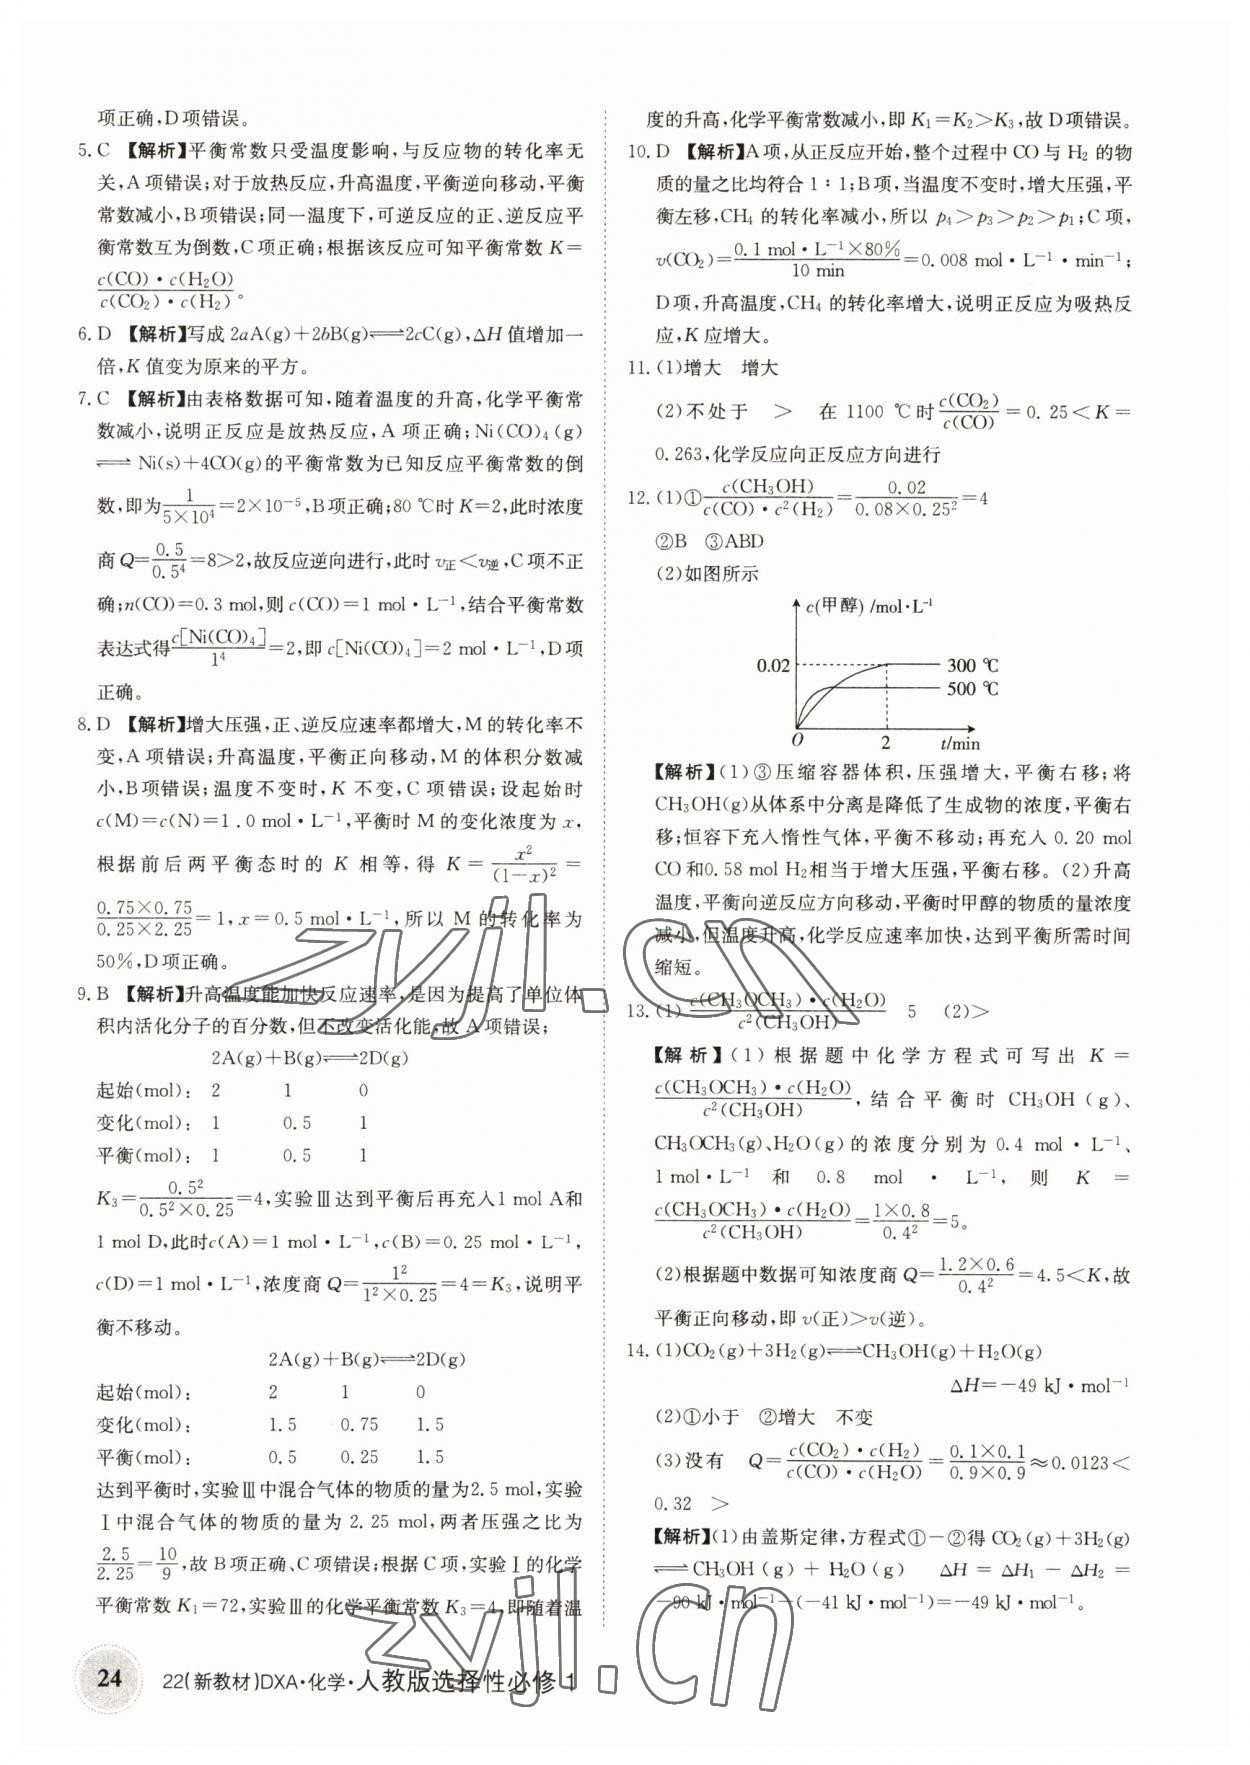 项正确,D项错误。
5. C 【解析】平衡常数只受温度影响,与反应物的转化率无
关,A项错误;对于放热反应,升高温度,平衡逆向移动,平衡
常数减小,B项错误;同一温度下,可逆反应的正、逆反应平
衡常数互为倒数,C项正确;根据该反应可知平衡常数 K=
c(CO)·c(H₂O)/c(CO₂)·c(H₂)。
6. D 【解析】写成 2aA(g)+2bB(g)⇌2cC(g),ΔH 值增加一
倍,K 值变为原来的平方。
7. C 【解析】由表格数据可知,随着温度的升高,化学平衡常
数减小,说明正反应是放热反应,A 项正确;Ni(CO)₄(g)
⇌ Ni(s)+4CO(g)的平衡常数为已知反应平衡常数的倒
数,即为1/(5×10⁴)=2×10⁻⁵,B项正确;80 ℃时 K=2,此时浓度
商 Q=0.5/0.5⁴=8>2,故反应逆向进行,此时 v正<v逆,C 项不正
确;n(CO)=0.3 mol,则 c(CO)=1 mol·L⁻¹,结合平衡常数
表达式得c[Ni(CO)₄]/1⁴=2,即 c[Ni(CO)₄]=2 mol·L⁻¹,D项
正确。
8. D 【解析】增大压强,正、逆反应速率都增大,M 的转化率不
变,A 项错误;升高温度,平衡正向移动,M 的体积分数减
小,B项错误;温度不变时,K 不变,C 项错误;设起始时
c(M)=c(N)=1.0 mol·L⁻¹,平衡时 M 的变化浓度为 x,
根据前后两平衡态时的 K 相等,得 K=x²/(1−x)²=
0.75×0.75/0.25×2.25=1,x=0.5 mol·L⁻¹,所以 M 的转化率为
50%,D项正确。
9. B 【解析】升高温度能加快反应速率,是因为提高了单位体
积内活化分子的百分数,但不改变活化能,故 A项错误;
2A(g)+B(g)⇌2D(g)
起始(mol): 2 1 0
变化(mol): 1 0.5 1
平衡(mol): 1 0.5 1
K₃=0.5²/(0.5²×0.25)=4,实验Ⅲ达到平衡后再充入1 mol A和
1 mol D,此时c(A)=1 mol·L⁻¹,c(B)=0.25 mol·L⁻¹,
c(D)=1 mol·L⁻¹,浓度商 Q=1²/(1²×0.25)=4=K₃,说明平
衡不移动。
2A(g)+B(g)⇌2D(g)
起始(mol): 2 1 0
变化(mol): 1.5 0.75 1.5
平衡(mol): 0.5 0.25 1.5
达到平衡时,实验Ⅲ中混合气体的物质的量为2.5 mol,实验
Ⅰ中混合气体的物质的量为 2.25 mol,两者压强之比为
2.5/2.25=10/9,故 B项正确、C项错误;根据 C项,实验Ⅰ的化学
平衡常数 K₁=72,实验Ⅲ的化学平衡常数 K₃=4,即随着温
度的升高,化学平衡常数减小,即 K₁=K₂>K₃,故 D项错误。
10. D 【解析】A项,从正反应开始,整个过程中 CO 与 H₂ 的物
质的量之比均符合 1∶1;B项,当温度不变时,增大压强,平
衡左移,CH₄ 的转化率减小,所以 p₄>p₃>p₂>p₁;C 项,
v(CO₂)=0.1 mol·L⁻¹×80%/10 min=0.008 mol·L⁻¹·min⁻¹;
D项,升高温度,CH₄ 的转化率增大,说明正反应为吸热反
应,K 应增大。
11. (1)增大 增大
(2)不处于 > 在 1100 ℃时c(CO₂)/c(CO)=0.25<K=
0.263,化学反应向正反应方向进行
12. (1)①c(CH₃OH)/c(CO)·c²(H₂)=0.02/(0.08×0.25²)=4
②B ③ABD
(2)如图所示
c(甲醇) /mol·L⁻¹
0.02 300 ℃
500 ℃
O 2 t/min
【解析】(1)③压缩容器体积,压强增大,平衡右移;将
CH₃OH(g)从体系中分离是降低了生成物的浓度,平衡右
移;恒容下充入惰性气体,平衡不移动;再充入 0.20 mol
CO和0.58 mol H₂相当于增大压强,平衡右移。(2)升高
温度,平衡向逆反应方向移动,平衡时甲醇的物质的量浓度
减小,但温度升高,化学反应速率加快,达到平衡所需时间
缩短。
13. (1)c(CH₃OCH₃)·c(H₂O)/c²(CH₃OH) 5 (2)>
【解析】(1)根据题中化学方程式可写出 K=
c(CH₃OCH₃)·c(H₂O)/c²(CH₃OH),结合平衡时 CH₃OH(g)、
CH₃OCH₃(g)、H₂O(g)的浓度分别为 0.4 mol·L⁻¹、
1 mol·L⁻¹ 和 0.8 mol·L⁻¹,则 K=
c(CH₃OCH₃)·c(H₂O)/c²(CH₃OH)=1×0.8/0.4²=5。
(2)根据题中数据可知浓度商 Q=1.2×0.6/0.4²=4.5<K,故
平衡正向移动,即 v(正)>v(逆)。
14. (1)CO₂(g)+3H₂(g)⇌CH₃OH(g)+H₂O(g)
ΔH=−49 kJ·mol⁻¹
(2)①小于 ②增大 不变
(3)没有 Q=c(CO₂)·c(H₂)/c(CO)·c(H₂O)=0.1×0.1/0.9×0.9≈0.0123<
0.32 >
【解析】(1)由盖斯定律,方程式①−②得 CO₂(g)+3H₂(g)
⇌CH₃OH(g)+H₂O(g) ΔH=ΔH₁−ΔH₂=
−90 kJ·mol⁻¹−(−41 kJ·mol⁻¹)=−49 kJ·mol⁻¹。
24 22(新教材)DXA·化学·人教版选择性必修 1
zyjl.cn
zyjl.cn